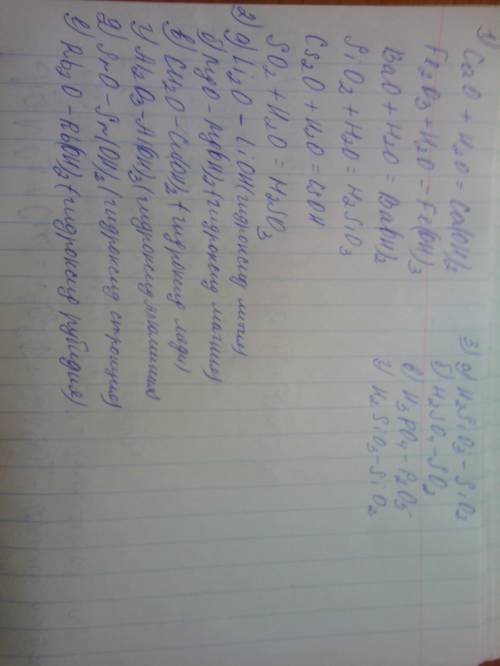 1) CaO + H2O = Ca(OH)2
Fe2O3 + H2O = Fe(OH)3
BaO + H2O = Ba(OH)2
SiO2 + H2O = H2SiO3
Cs2O + H2O = CsOH
SO2 + H2O = H2SO3
2) а) Li2O - LiOH (гидроксид лития)
б) MgO - Mg(OH)2 (гидроксид магния)
в) CuO - Cu(OH)2 (гидроксид меди)
г) Al2O3 - Al(OH)3 (гидроксид алюминия
д) SrO - Sr(OH)2 (гидроксид стронция)
е) Rb2O - Rb(OH)2 (гидроксид рубидия)
3) а) H2SiO3 - SiO2
б) H2SO4 - SO3
в) H3PO4 - P2O5
г) H2SiO3 - SiO2